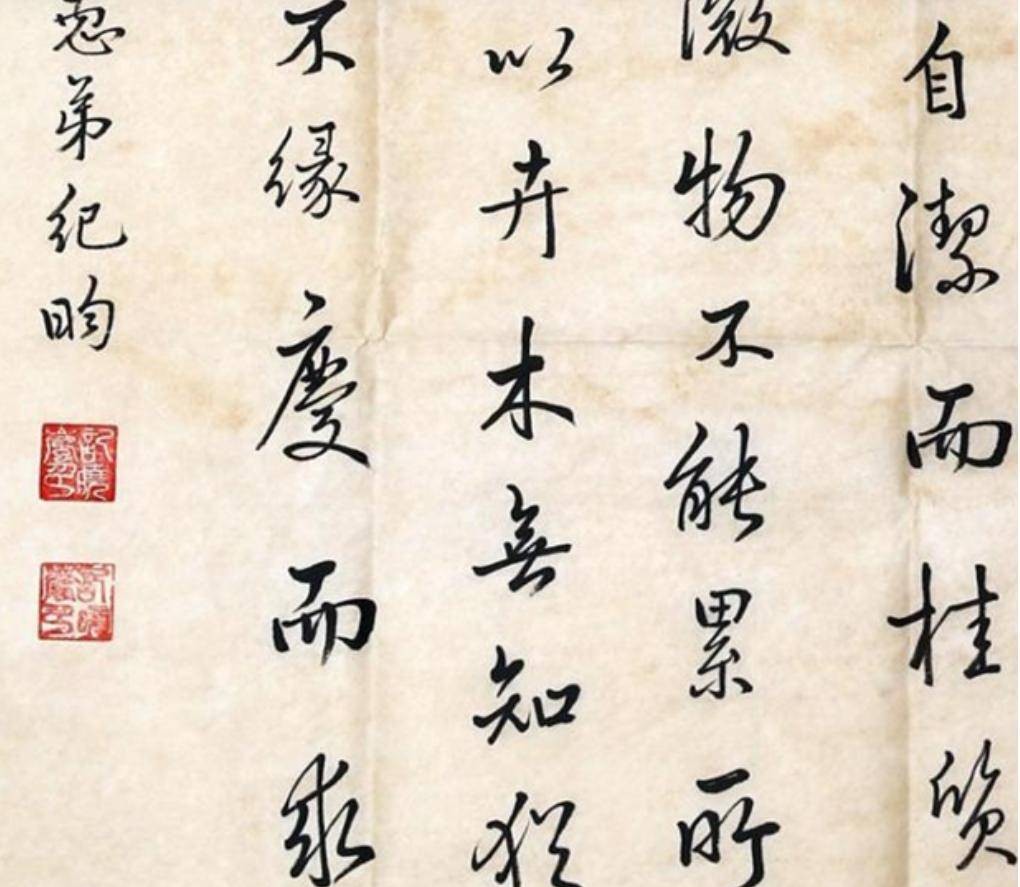 自潔而桂質
微物不能累所
以卉木無知猶
不緣慶而求
愚弟紀昀